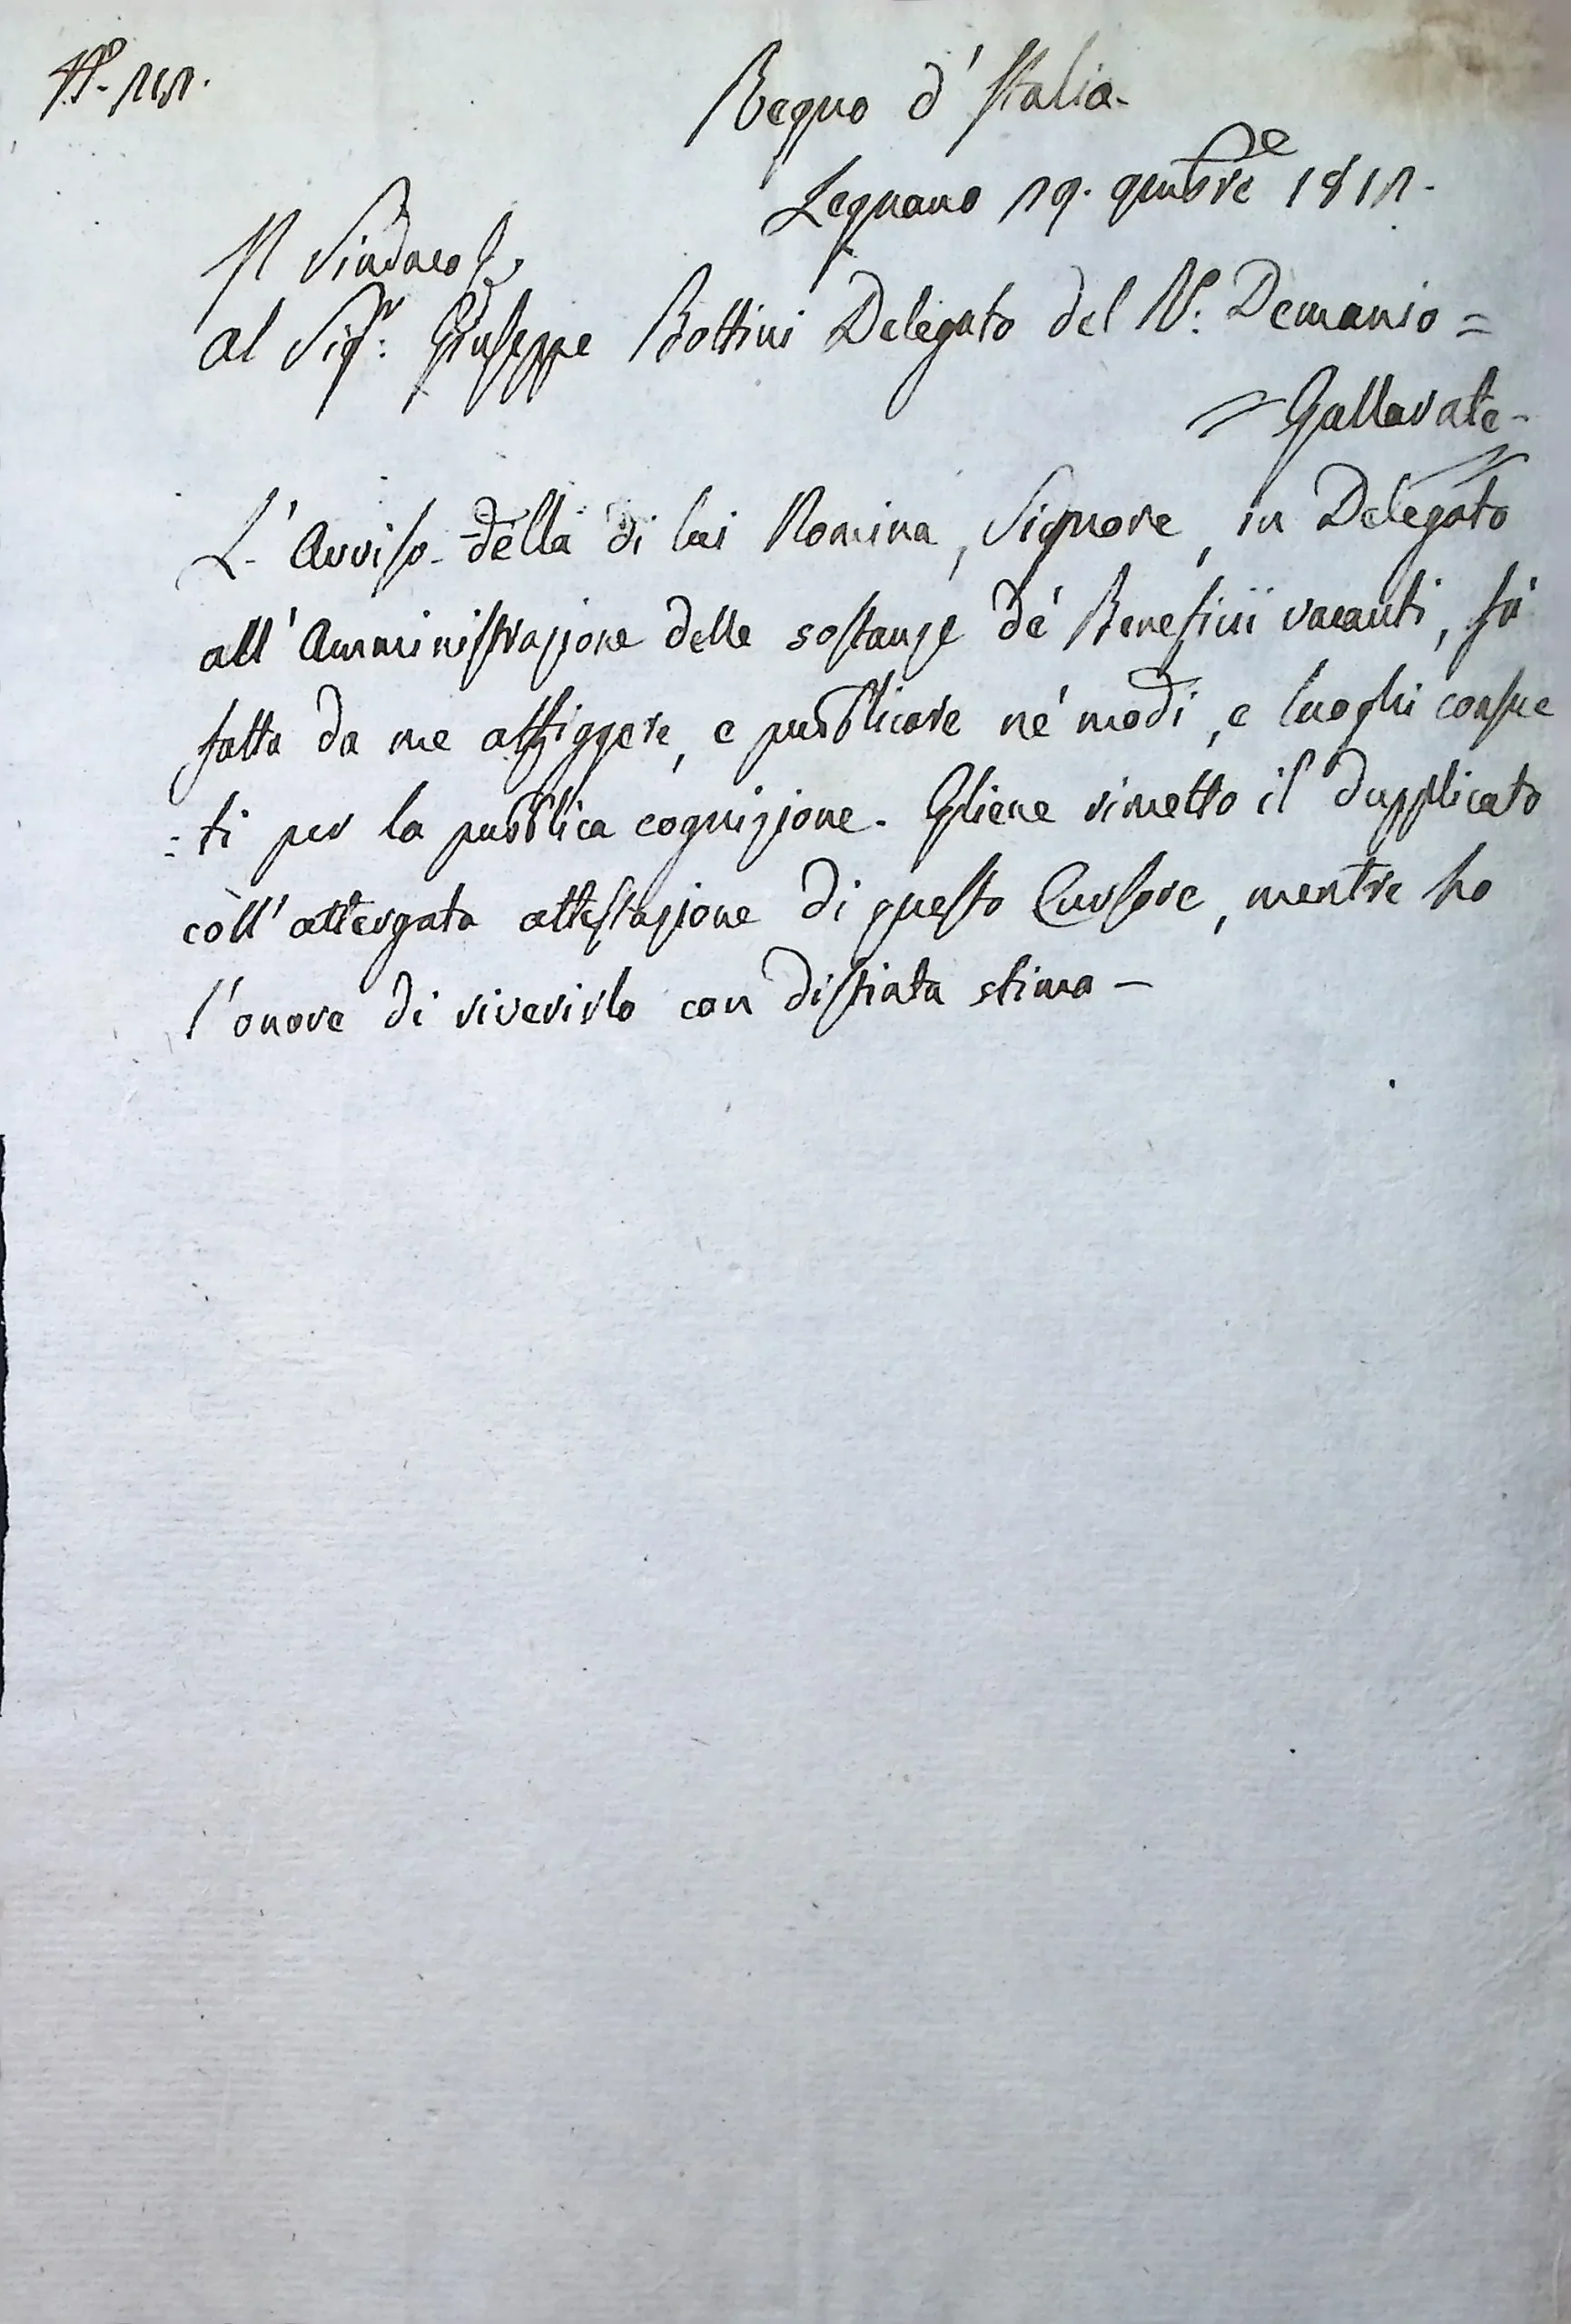 Regno d'Italia.
Legnano 29. 9mbre 1812.
Il Sindaco
Al Sigr: Giuseppe Bottini Delegato del R: Demanio =
= Gallarate -
L'Avviso della di lui Nomina, Signore, in Delegato
all'Amministrazione delle sostanze de' Beneficii vacanti, fù
fatto da me affiggere, e pubblicare ne' modi, e luoghi consue
=ti per la pubblica cognizione. Gliene rimetto il dupplicato
còll'attergata attestazione di questo Cursore, mentre ho
l'onore di riverirlo con distinta stima -